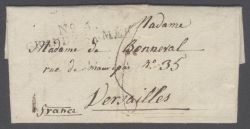 Madame
Madame de Bonneval
rue de Maurepas n° 35
Versailles
france